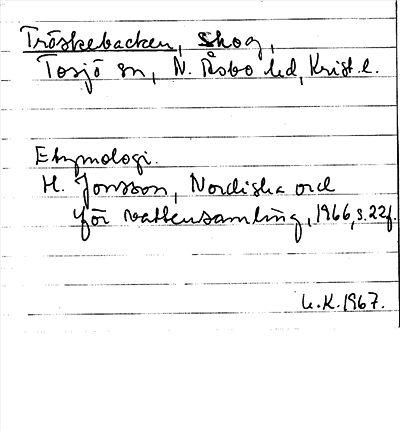 Tröskebacken, skog,
Tosjö sn, N. Åsbo hd, Krist. l.
Etymologi.
H. Jonsson, Nordiska ord
för vattensamling, 1966, s. 22f.
G.K. 1967.